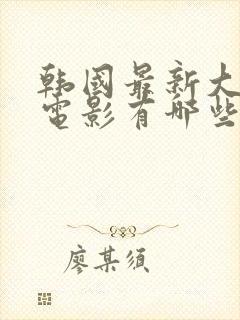 韩國最新大
電影有哪些
廖某须